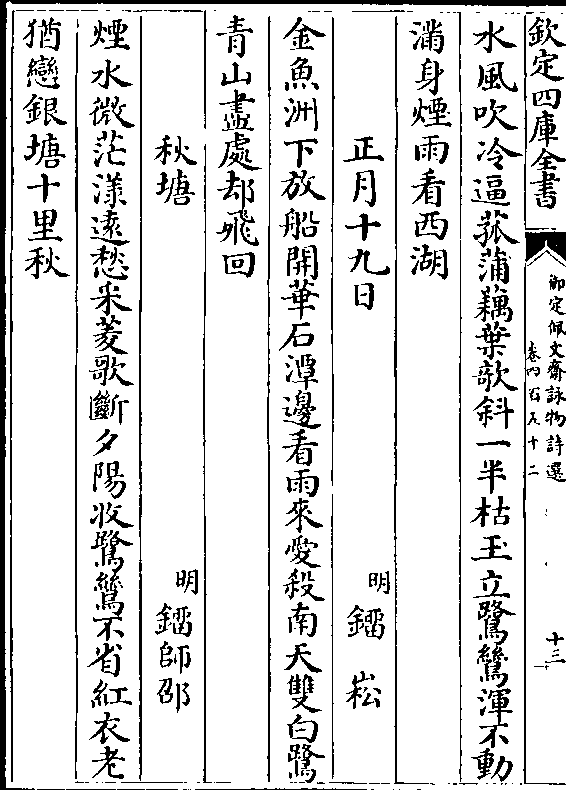 欽定四庫全書
御定佩文齋詠物詩選
卷四百五十二
十三
水風吹冷逼菰蒲藕葉欹斜一半枯玉立鷺鷥渾不動
滿身煙雨看西湖
正月十九日
明 鐳 崧
金魚洲下放船開華石潭邊看雨來愛殺南天雙白鷺
青山盡處却飛回
秋塘
明 鐳師邵
煙水微茫漾遠愁米菱歌斷夕陽收鷺鷥不省紅衣老
猶戀銀塘十里秋